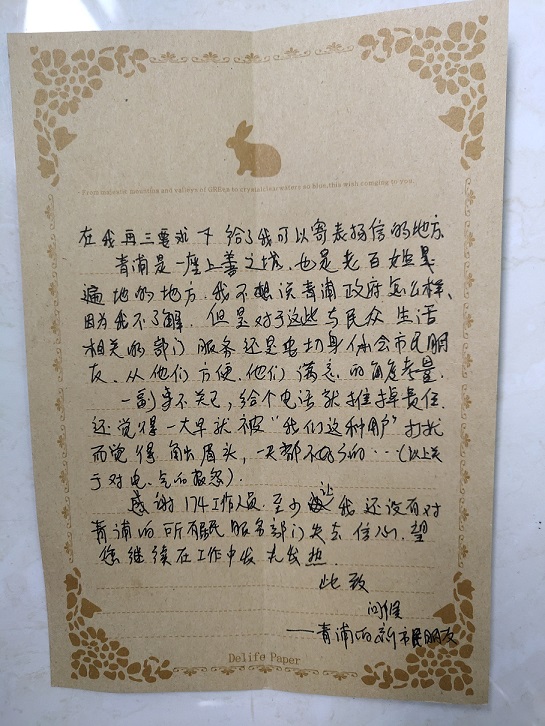 - From majestic mountins and valleys of GREen to crystalclear waters so blue,this wish comging to you
在我再三要求下给了我可以寄表扬信的地方
青浦是一座上善之城、也是老百姓是
遍地的地方.我不想谈青浦政府怎么样、
因为我不了解.但是对于这些与民众生活
相关的部门服务还是要切身体会市民朋
友、从他们方便、他们满意的角度考量.
一副事不关己,给个电话就推掉责任.
还觉得一大早就被“我们这种用户”打扰
而觉得触出眉头,一天都不好的…(以上关
于对电、气的抱怨).
感谢174工作人员.至少让我还没有对
青浦的所有民服务部门失去信心.望
您继续在工作中发光发热.
此致
问候
——青浦的新市民朋友
Delife Paper